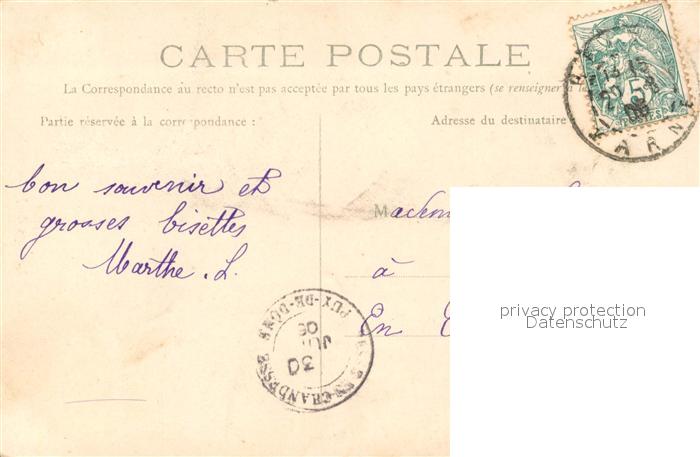 CARTE POSTALE
La Correspondance au recto n'est pas acceptée par tous les pays étrangers (se renseigner à la
Partie réservée à la correspondance :
Adresse du destinataire
bon souvenir et
grosses bisettes
Marthe. L.
à
En
PUY-DE-DÔME
30
JUI
06
5
POSTES
TARN
privacy protection
Datenschutz